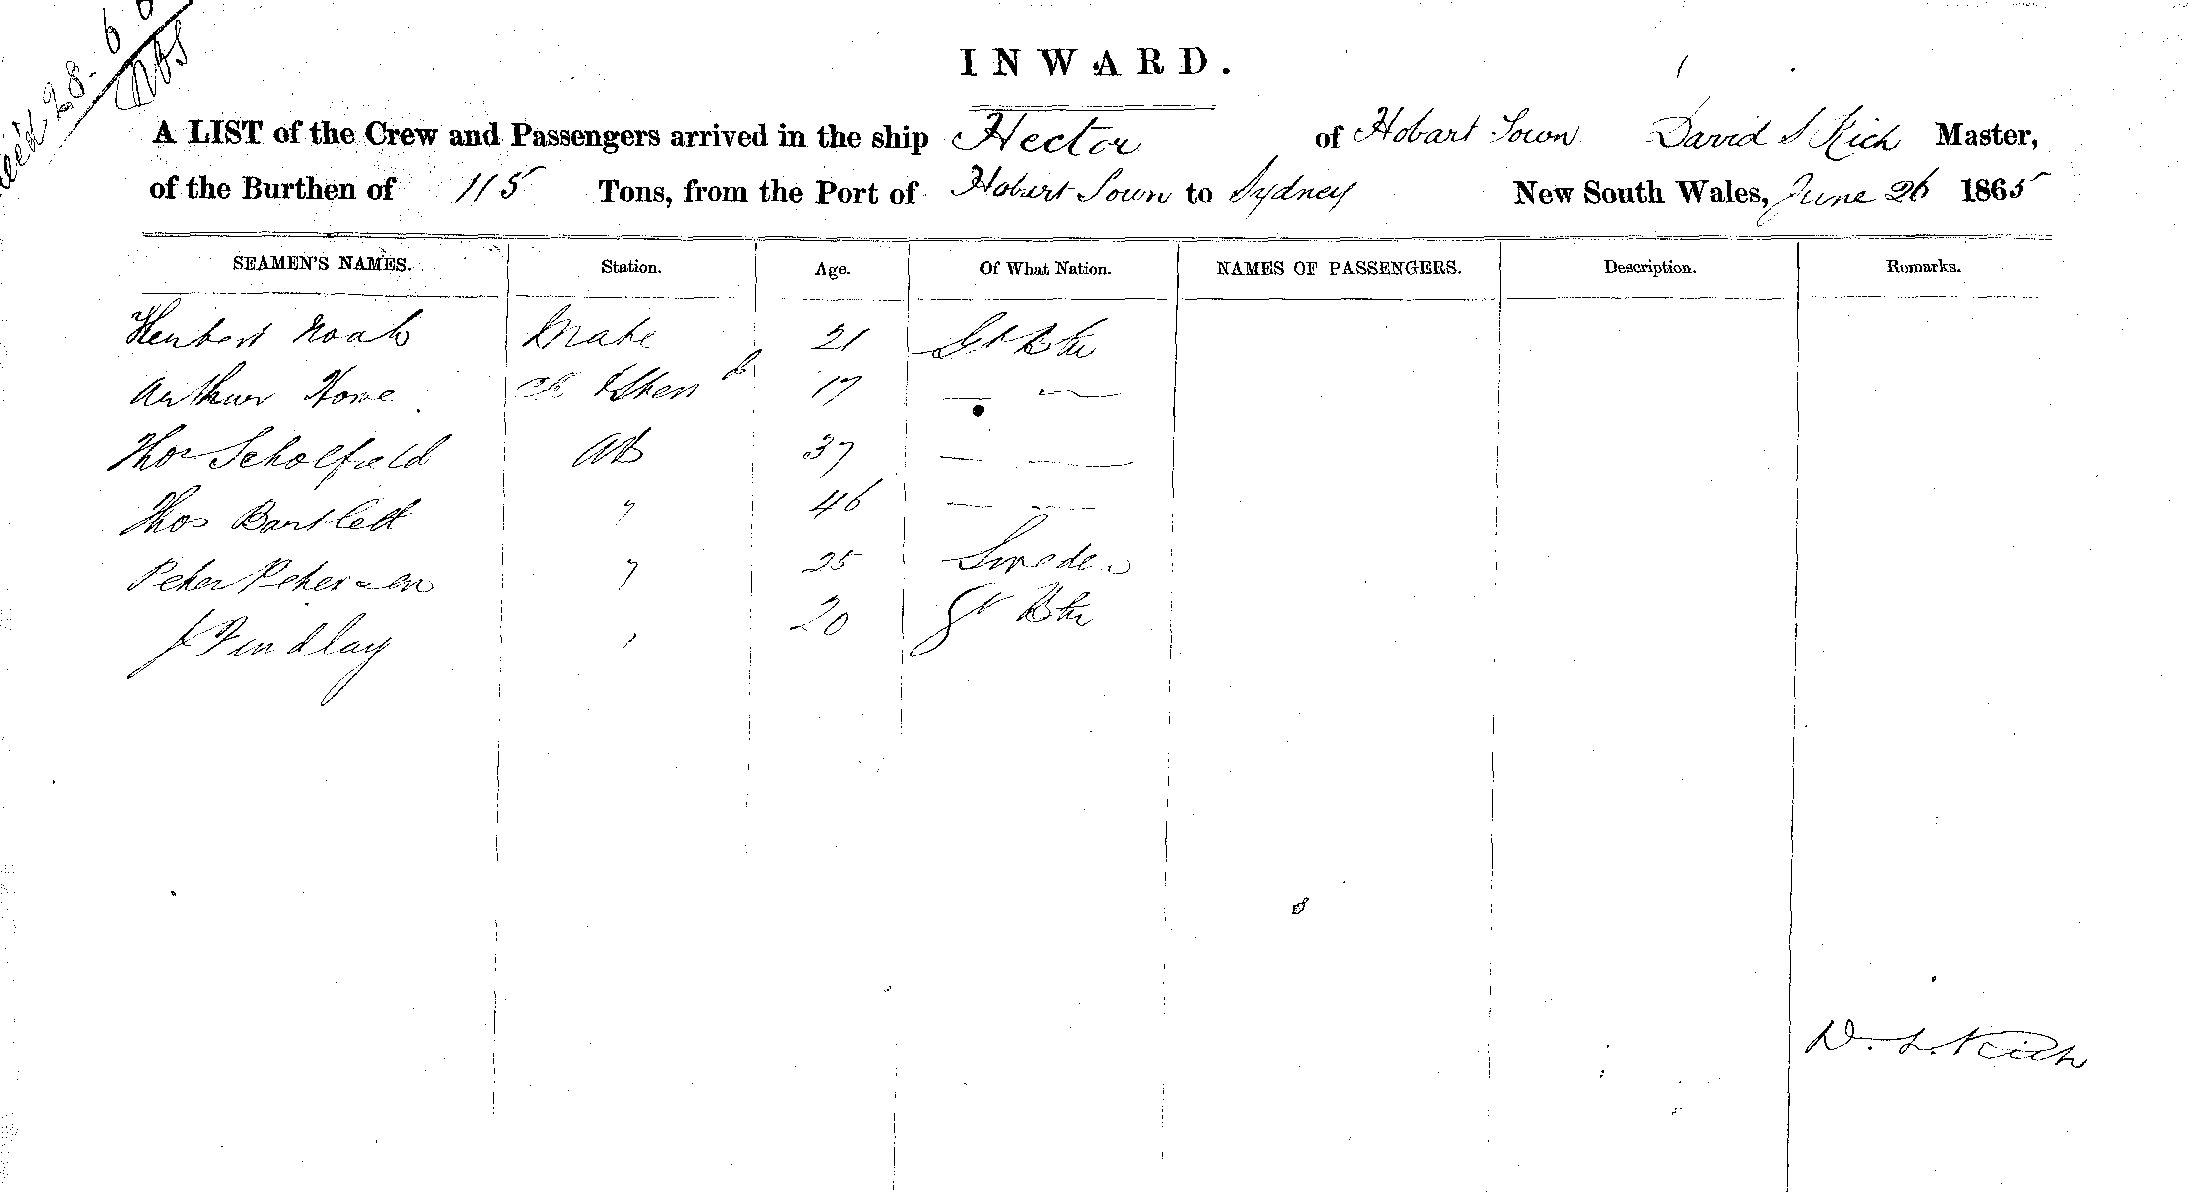 28-6
INWARD.
A LIST of the Crew and Passengers arrived in the ship Hector of Hobart Town David S Rich Master,
of the Burthen of 115 Tons, from the Port of Hobart Town to Sydney New South Wales, June 26 1865
SEAMEN'S NAMES. Station. Age. Of What Nation. NAMES OF PASSENGERS. Description. Remarks.
Herbert Noah Mate 21 Gt Btn
Arthur Howe 17 — —
Thos Scholfield AB 37 — —
Thos Bartlett " 46 — —
Peter Petersen " 25 Sweden
J Findlay " 20 Gt Btn
D. S. Rich